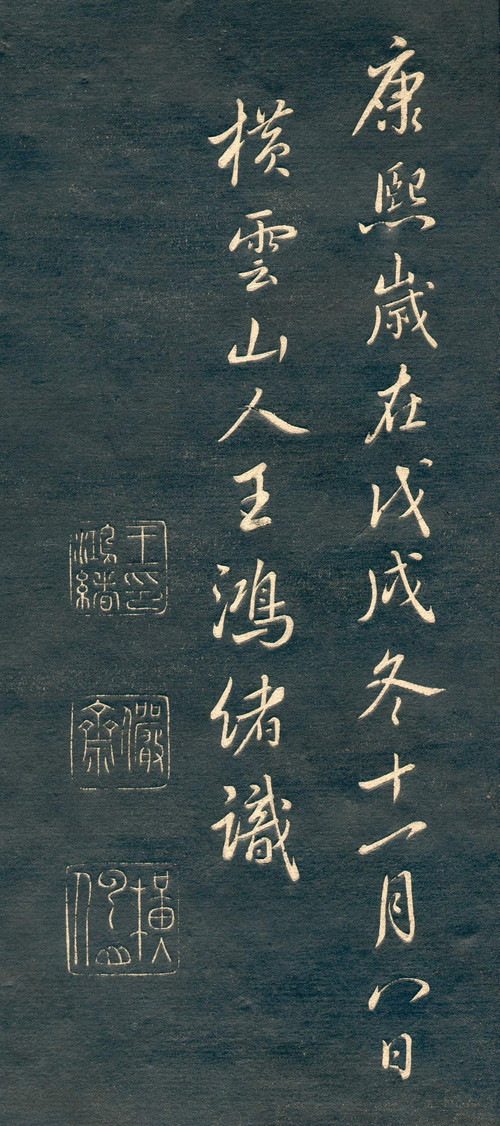 康熙歲在戊戌冬十一月八日
橫雲山人王鴻緒識
王印鴻緒
儼齋